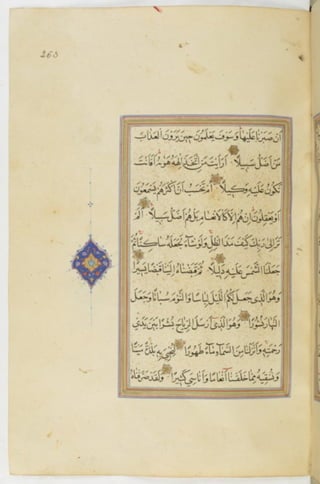 263
أن صبرنا عليها وسوف يعلمون حين يرون العذاب
من أضل سبيلا أرأيت من اتخذ إلهه هويه أفأنت
تكون عليه وكيلا أم تحسب أن أكثرهم يسمعون
أو يعقلون إن هم إلا كالأنعام بل هم أضل سبيلا ألم
تر إلى ربك كيف مد الظل ولو شاء لجعله ساكنا ثم
جعلنا الشمس عليه دليلا ثم قبضناه إلينا قبضا يسيرا
وهو الذي جعل لكم الليل لباسا والنوم سباتا وجعل
النهار نشورا وهو الذي أرسل الرياح بشرا بين يدي
رحمته وأنزلنا من السماء ماء طهورا لنحيي به بلدة ميتا
ونسقيه مما خلقنا أنعاما وأناسي كثيرا ولقد صرفناه